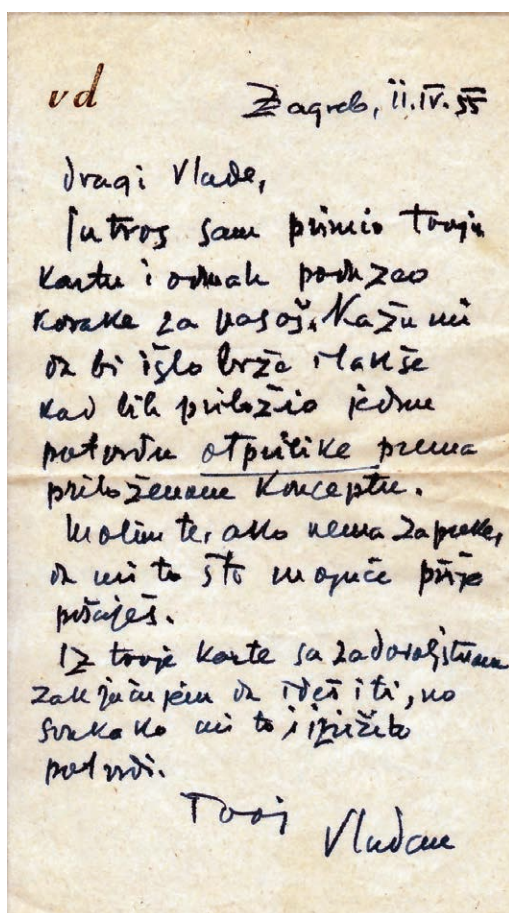 vd
Zagreb, 11.IV.55
Dragi Vlade,
Jutros sam primio Tvoju
kartu i odmah poduzeo
korake za pasoš. Kažu mi
da bi išlo brže i lakše
kad bih priložio jednu
potvrdu otprilike prema
priloženom konceptu.
Molim te, ako nema zapreke,
da mi to što moguće prije
pošalješ.
Iz tvoje karte sa zadovoljstvom
zaključujem da ideš i ti, no
svakako mi to i izričito
potvrdi.
Tvoj
Vladan